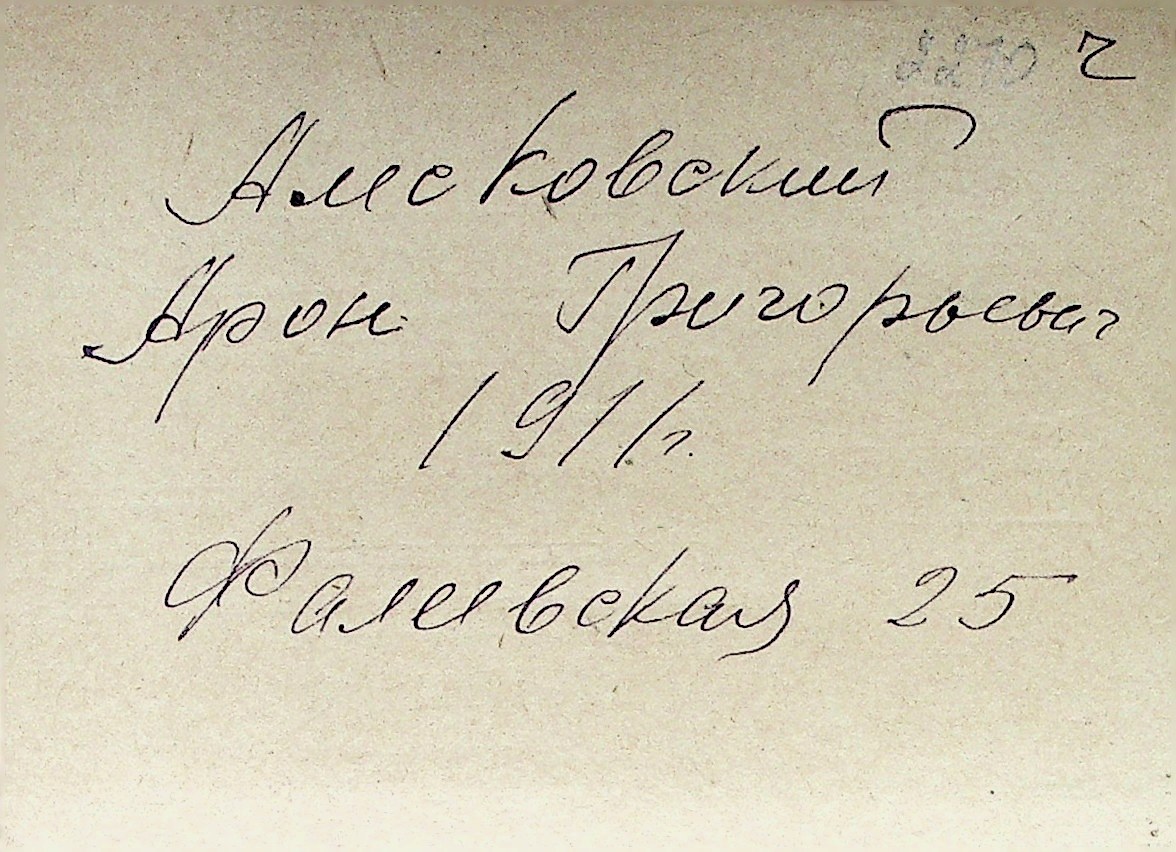 2270 ч
Алековский
Арон Григорьевич
1911г.
Фалевская 25